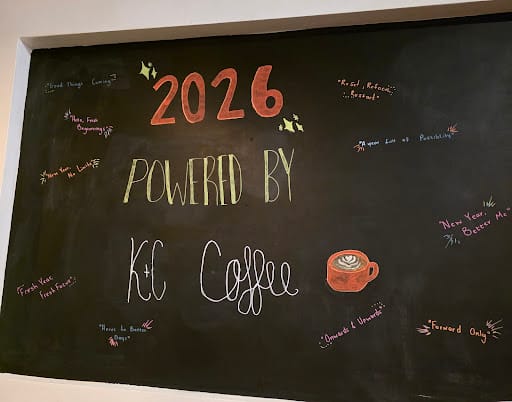 "Good Things Coming"
2026
"Reset, Refocus,
Restart"
"New, Fresh
Beginnings"
"A year full of Possibility"
"New Year,
POWERED BY
"New Year,
Better Me"
K+C Coffee
"Fresh Year,
Fresh Focus"
"Heres to Better
Days"
"Onwards & Upwards"
"Forward Only"